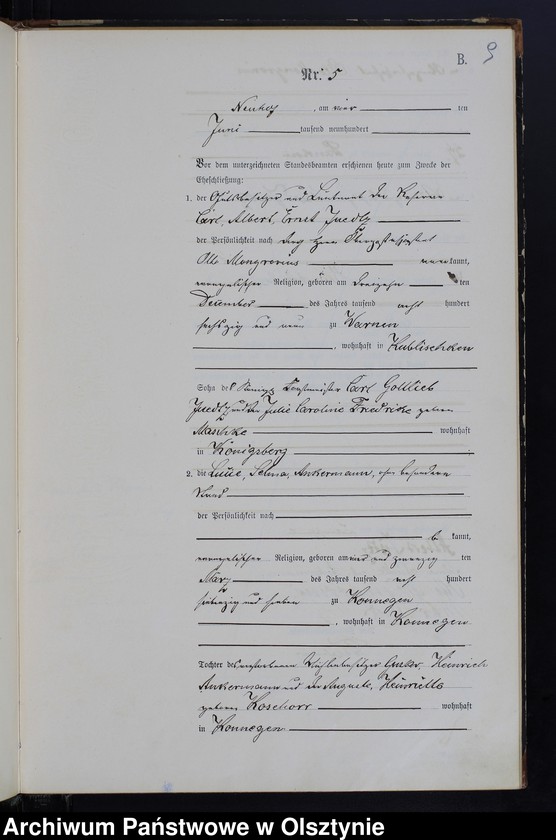 B. 9
Nr. 5
Neuhof, am vier ten
Juni tausend neunhundert
Vor dem unterzeichneten Standesbeamten erschienen heute zum Zwecke der
Eheschließung:
1. der Gutsbesitzer und Lieutenant der Reserve
Carl, Albert, Ernst Juedtz
der Persönlichkeit nach durch Herrn
Otto kannt,
evangelischer Religion, geboren am dreizehn ten
December des Jahres tausend acht hundert
sechszig und neun zu Warnen
, wohnhaft in Kublischken
Sohn des Königl. Forstmeister Carl Gottlieb
Juedtz und der Julie Caroline Friedrike geboren
Maschke wohnhaft
in Königsberg
2. die Luise, Selma, Ankermann, ohne besonderen
Stand
der Persönlichkeit nach
be kannt,
evangelischer Religion, geboren am ein und zwanzig ten
März des Jahres tausend acht hundert
siebenzig und sieben zu Konnegen
, wohnhaft in Konnegen
Tochter des verstorbenen Mühlenbesitzer Gustav Heinrich
Ankermann und der Auguste, Henriette
geboren Koschorr wohnhaft
in Konnegen
Archiwum Państwowe w Olsztynie